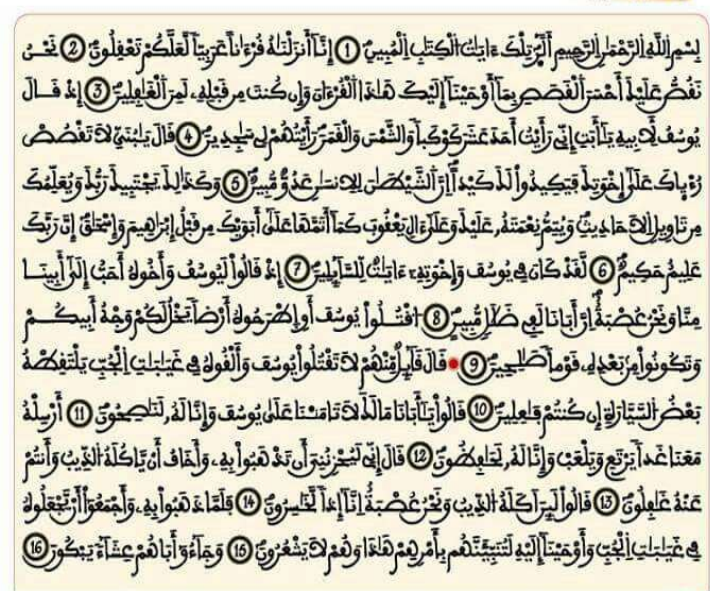 بِسْمِ اللَّهِ الرَّحْمَٰنِ الرَّحِيمِ أَلَٓرۖ تِلْكَ ءَايَٰتُ الْكِتَٰبِ الْمُبِينِ (1) إِنَّآ أَنزَلْنَٰهُ قُرْءَٰناً عَرَبِيّاً لَّعَلَّكُمْ تَعْقِلُونَ (2) نَحْنُ
نَقُصُّ عَلَيْكَ أَحْسَنَ الْقَصَصِ بِمَآ أَوْحَيْنَآ إِلَيْكَ هَٰذَا الْقُرْءَانَ وَإِن كُنتَ مِن قَبْلِهِۦ لَمِنَ الْغَٰفِلِينَ (3) إِذْ قَالَ
يُوسُفُ لِأَبِيهِ يَٰٓأَبَتِ إِنِّي رَأَيْتُ أَحَدَ عَشَرَ كَوْكَباً وَالشَّمْسَ وَالْقَمَرَ رَأَيْتُهُمْ لِي سَٰجِدِينَ (4) قَالَ يَٰبُنَيِّ لَا تَقْصُصْ
رُءْيَاكَ عَلَىٰٓ إِخْوَتِكَ فَيَكِيدُواْ لَكَ كَيْداًۖ إِنَّ الشَّيْطَٰنَ لِلْإِنسَٰنِ عَدُوّٞ مُّبِينٞ (5) وَكَذَٰلِكَ يَجْتَبِيكَ رَبُّكَ وَيُعَلِّمُكَ
مِن تَأْوِيلِ الْأَحَادِيثِ وَيُتِمُّ نِعْمَتَهُۥ عَلَيْكَ وَعَلَىٰٓ ءَالِ يَعْقُوبَ كَمَآ أَتَمَّهَا عَلَىٰٓ أَبَوَيْكَ مِن قَبْلُ إِبْرَٰهِيمَ وَإِسْحَٰقَۖ إِنَّ رَبَّكَ
عَلِيمٌ حَكِيمٞ (6) لَّقَدْ كَانَ فِي يُوسُفَ وَإِخْوَتِهِۦٓ ءَايَٰتٞ لِّلسَّآئِلِينَ (7) إِذْ قَالُواْ لَيُوسُفُ وَأَخُوهُ أَحَبُّ إِلَىٰٓ أَبِينَا
مِنَّا وَنَحْنُ عُصْبَةٌۖ إِنَّ أَبَانَا لَفِي ضَلَٰلٖ مُّبِينٍ (8) اقْتُلُواْ يُوسُفَ أَوِ اطْرَحُوهُ أَرْضاً يَخْلُ لَكُمْ وَجْهُ أَبِيكُمْ
وَتَكُونُواْ مِنۢ بَعْدِهِۦ قَوْماً صَٰلِحِينَ (9) قَالَ قَآئِلٞ مِّنْهُمْ لَا تَقْتُلُواْ يُوسُفَ وَأَلْقُوهُ فِي غَيَٰبَٰتِ الْجُبِّ يَلْتَقِطْهُ
بَعْضُ السَّيَّارَةِ إِن كُنتُمْ فَٰعِلِينَ (10) قَالُواْ يَٰٓأَبَانَا مَا لَكَ لَا تَأْمَ۬نَّا عَلَىٰ يُوسُفَ وَإِنَّا لَهُۥ لَنَٰصِحُونَ (11) أَرْسِلْهُ
مَعَنَا غَداً يَرْتَعِ وَيَلْعَبْ وَإِنَّا لَهُۥ لَحَٰفِظُونَ (12) قَالَ إِنِّي لَيُحْزِنُنِيَ أَن تَذْهَبُواْ بِهِۦ وَأَخَافُ أَنْ يَّأْكُلَهُ الذِّيبُ وَأَنتُمْ
عَنْهُ غَٰفِلُونَ (13) قَالُواْ لَئِنْ أَكَلَهُ الذِّيبُ وَنَحْنُ عُصْبَةٌ إِنَّآ إِذاً لَّخَٰسِرُونَ (14) فَلَمَّا ذَهَبُواْ بِهِۦ وَأَجْمَعُوٓاْ أَنْ يَّجْعَلُوهُ
فِي غَيَٰبَٰتِ الْجُبِّۖ وَأَوْحَيْنَآ إِلَيْهِ لَتُنَبِّئَنَّهُم بِأَمْرِهِمْ هَٰذَا وَهُمْ لَا يَشْعُرُونَ (15) وَجَآءُوٓ أَبَاهُمْ عِشَآءٗ يَبْكُونَ (16)